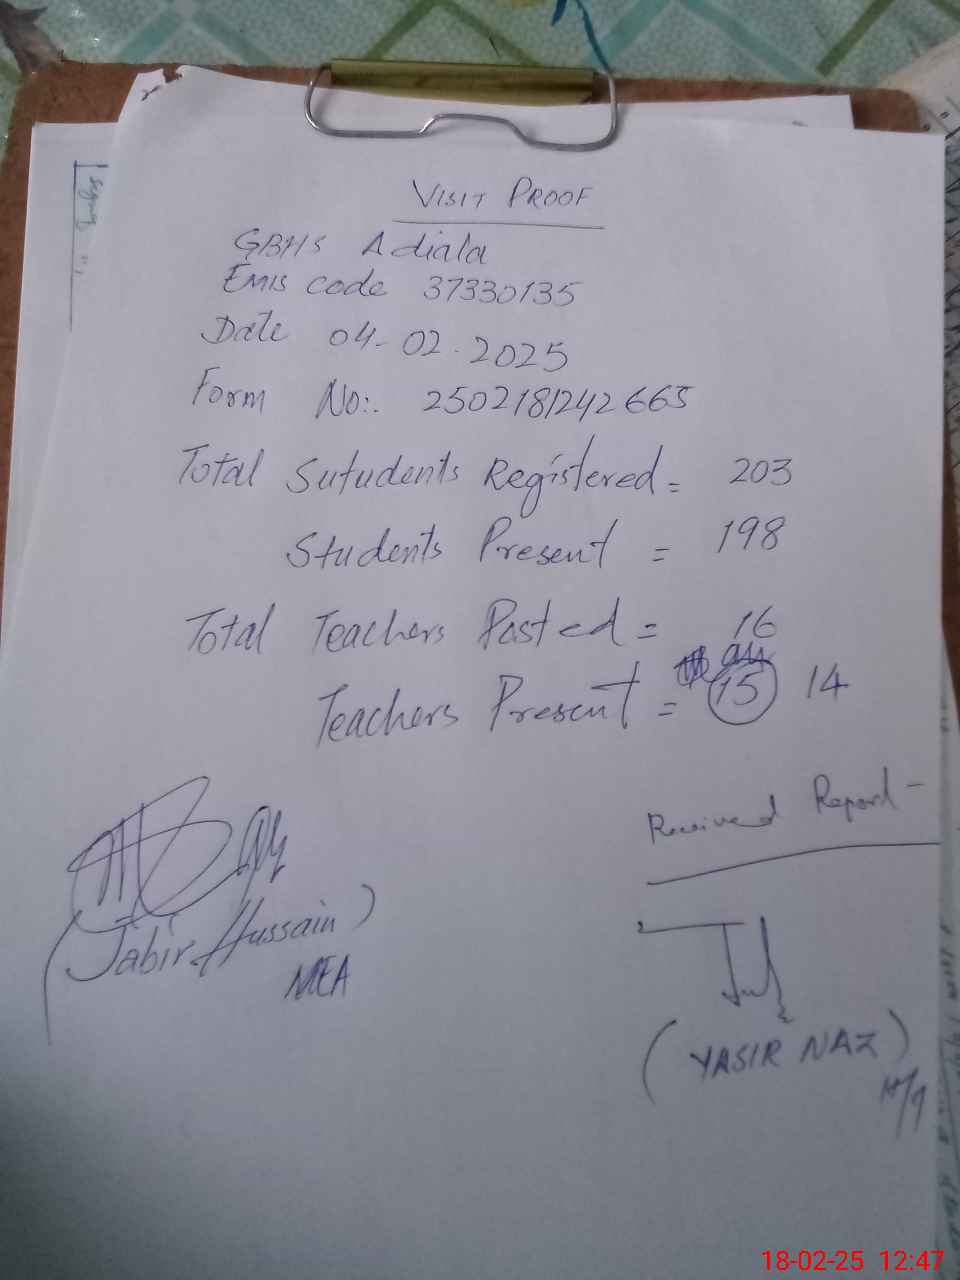 VISIT PROOF
GBHS Adiala
Emis code 37330135
Date 04-02-2025
Form No:. 2502181242665
Total Sutudents Registered = 203
Students Present = 198
Total Teachers Posted = 16
Teachers Present = 15 14
Received Report -
(Jabir Hussain)
MEA
(YASIR NAZ)
18-02-25 12:47